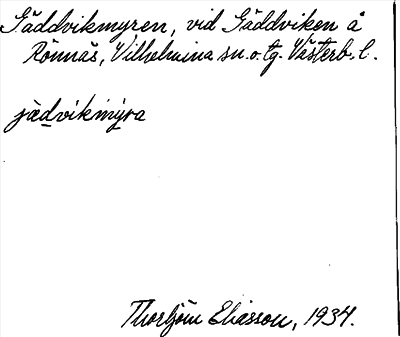 Gäddvikmyren, vid Gäddviken å
Rönnäs, Vilhelmina sn. o. tg. Västerb. l.
jædvikmyra
Thorbjörn Eliasson, 1934.